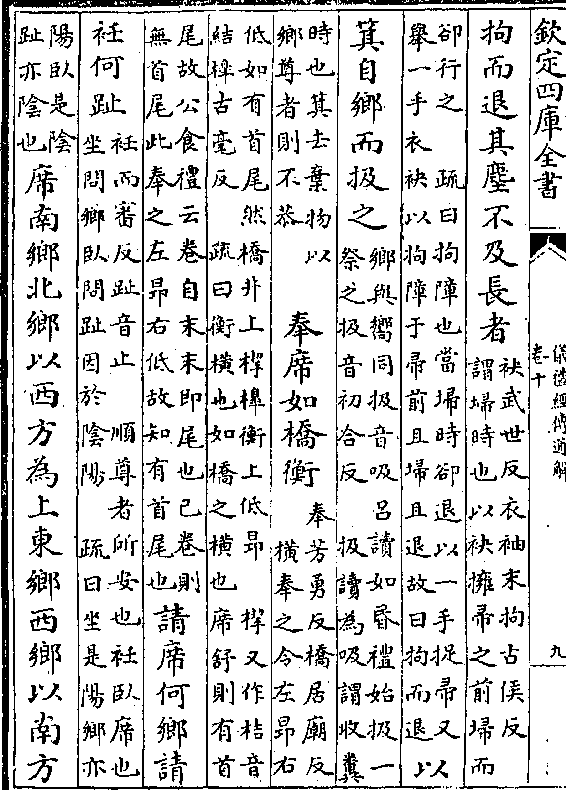 欽定四庫全書
儀禮經傳通解
卷十
九
拘而退其塵不及長者袂武世反衣袖末拘古侯反
謂埽時也以袂擁帚之前埽而
卻行之　疏曰拘障也當埽時卻退以一手捉帚又以
舉一手衣袂以拘障于帚前且埽且退故曰拘而退以
箕自鄉而扱之鄉與嚮同扱音吸呂讀如昏禮始扱一
祭之扱音初合反　扱讀為吸謂收糞
時也箕去棄物以
鄉尊者則不恭
奉席如橋衡奉芳勇反橋居廟反
橫奉之令左昂右
低如有首尾然橋井上㮮橰衡上低昂　㮮又作桔音
結橰古毫反　疏曰衡橫也如橋之橫也席舒則有首
尾故公食禮云卷自末末即尾也已卷則
無首尾此奉之左昂右低故知有首尾也
請席何鄉請
衽何趾衽而審反趾音止　順尊者所安也衽臥席也
坐問鄉臥問趾因於陰陽　疏曰坐是陽鄉亦
陽臥是陰
趾亦陰也
席南鄉北鄉以西方為上東鄉西鄉以南方